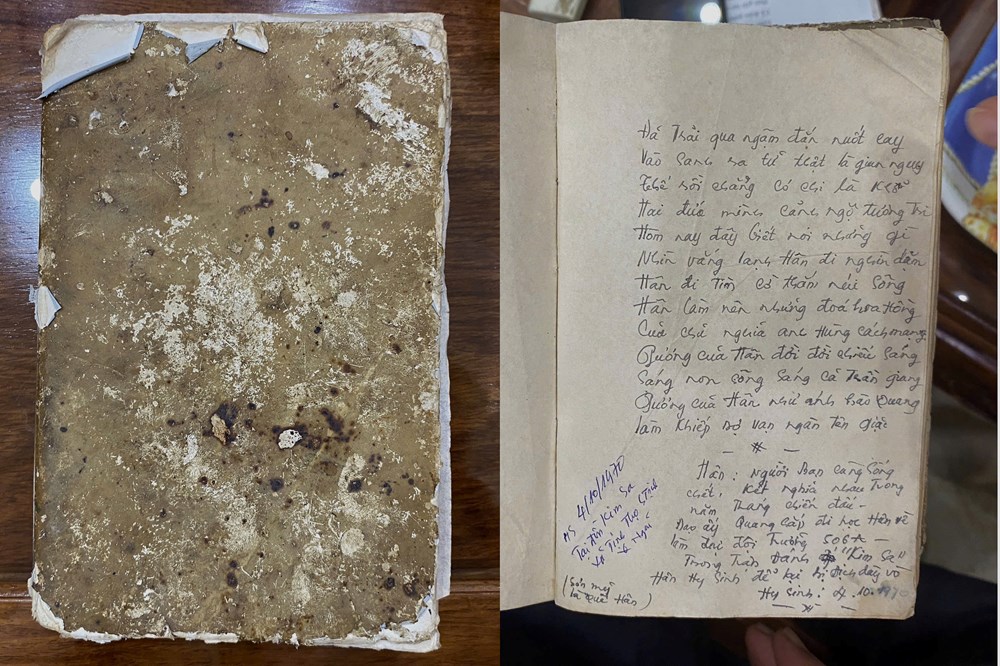 Đã Trải qua ngậm đắng nuốt cay
Vào sanh ra tử thật là gian nguy
Thế rồi chẳng có chi là khổ
Hai đứa mình cảnh ngộ tương tri
Hôm nay đây biết nói những gì
Nhìn vầng lạnh Hân đi nghìn dặm
Hân đi tìm cả thắm núi Sông
Hân làm nên những đoá hoa Hồng
Của chủ nghĩa anh Hùng cách mạng
Gương của Hân đời đời chiếu Sáng
Sáng non Sông Sáng cả Trần gian
Gương của Hân như ánh hào Quang
làm Khiếp sợ vạn ngàn tên giặc
Hân: Người Bạn cùng Sống
chết, Kết nghĩa nhau Trong
năm Tháng chiến đấu -
Đạo ấy Quang Cấp đi học Hân về
làm đại đội Trưởng 506A -
Trong Trận Đánh "Kim Sa"
Hân Hy Sinh để lại
Hy Sinh: 4.10.1970
HS 4/10/1970
Tại Ấp - Kim Sa
Xã Tịnh Thọ (Tịnh
(Sơn mỹ
là Quê Hân)